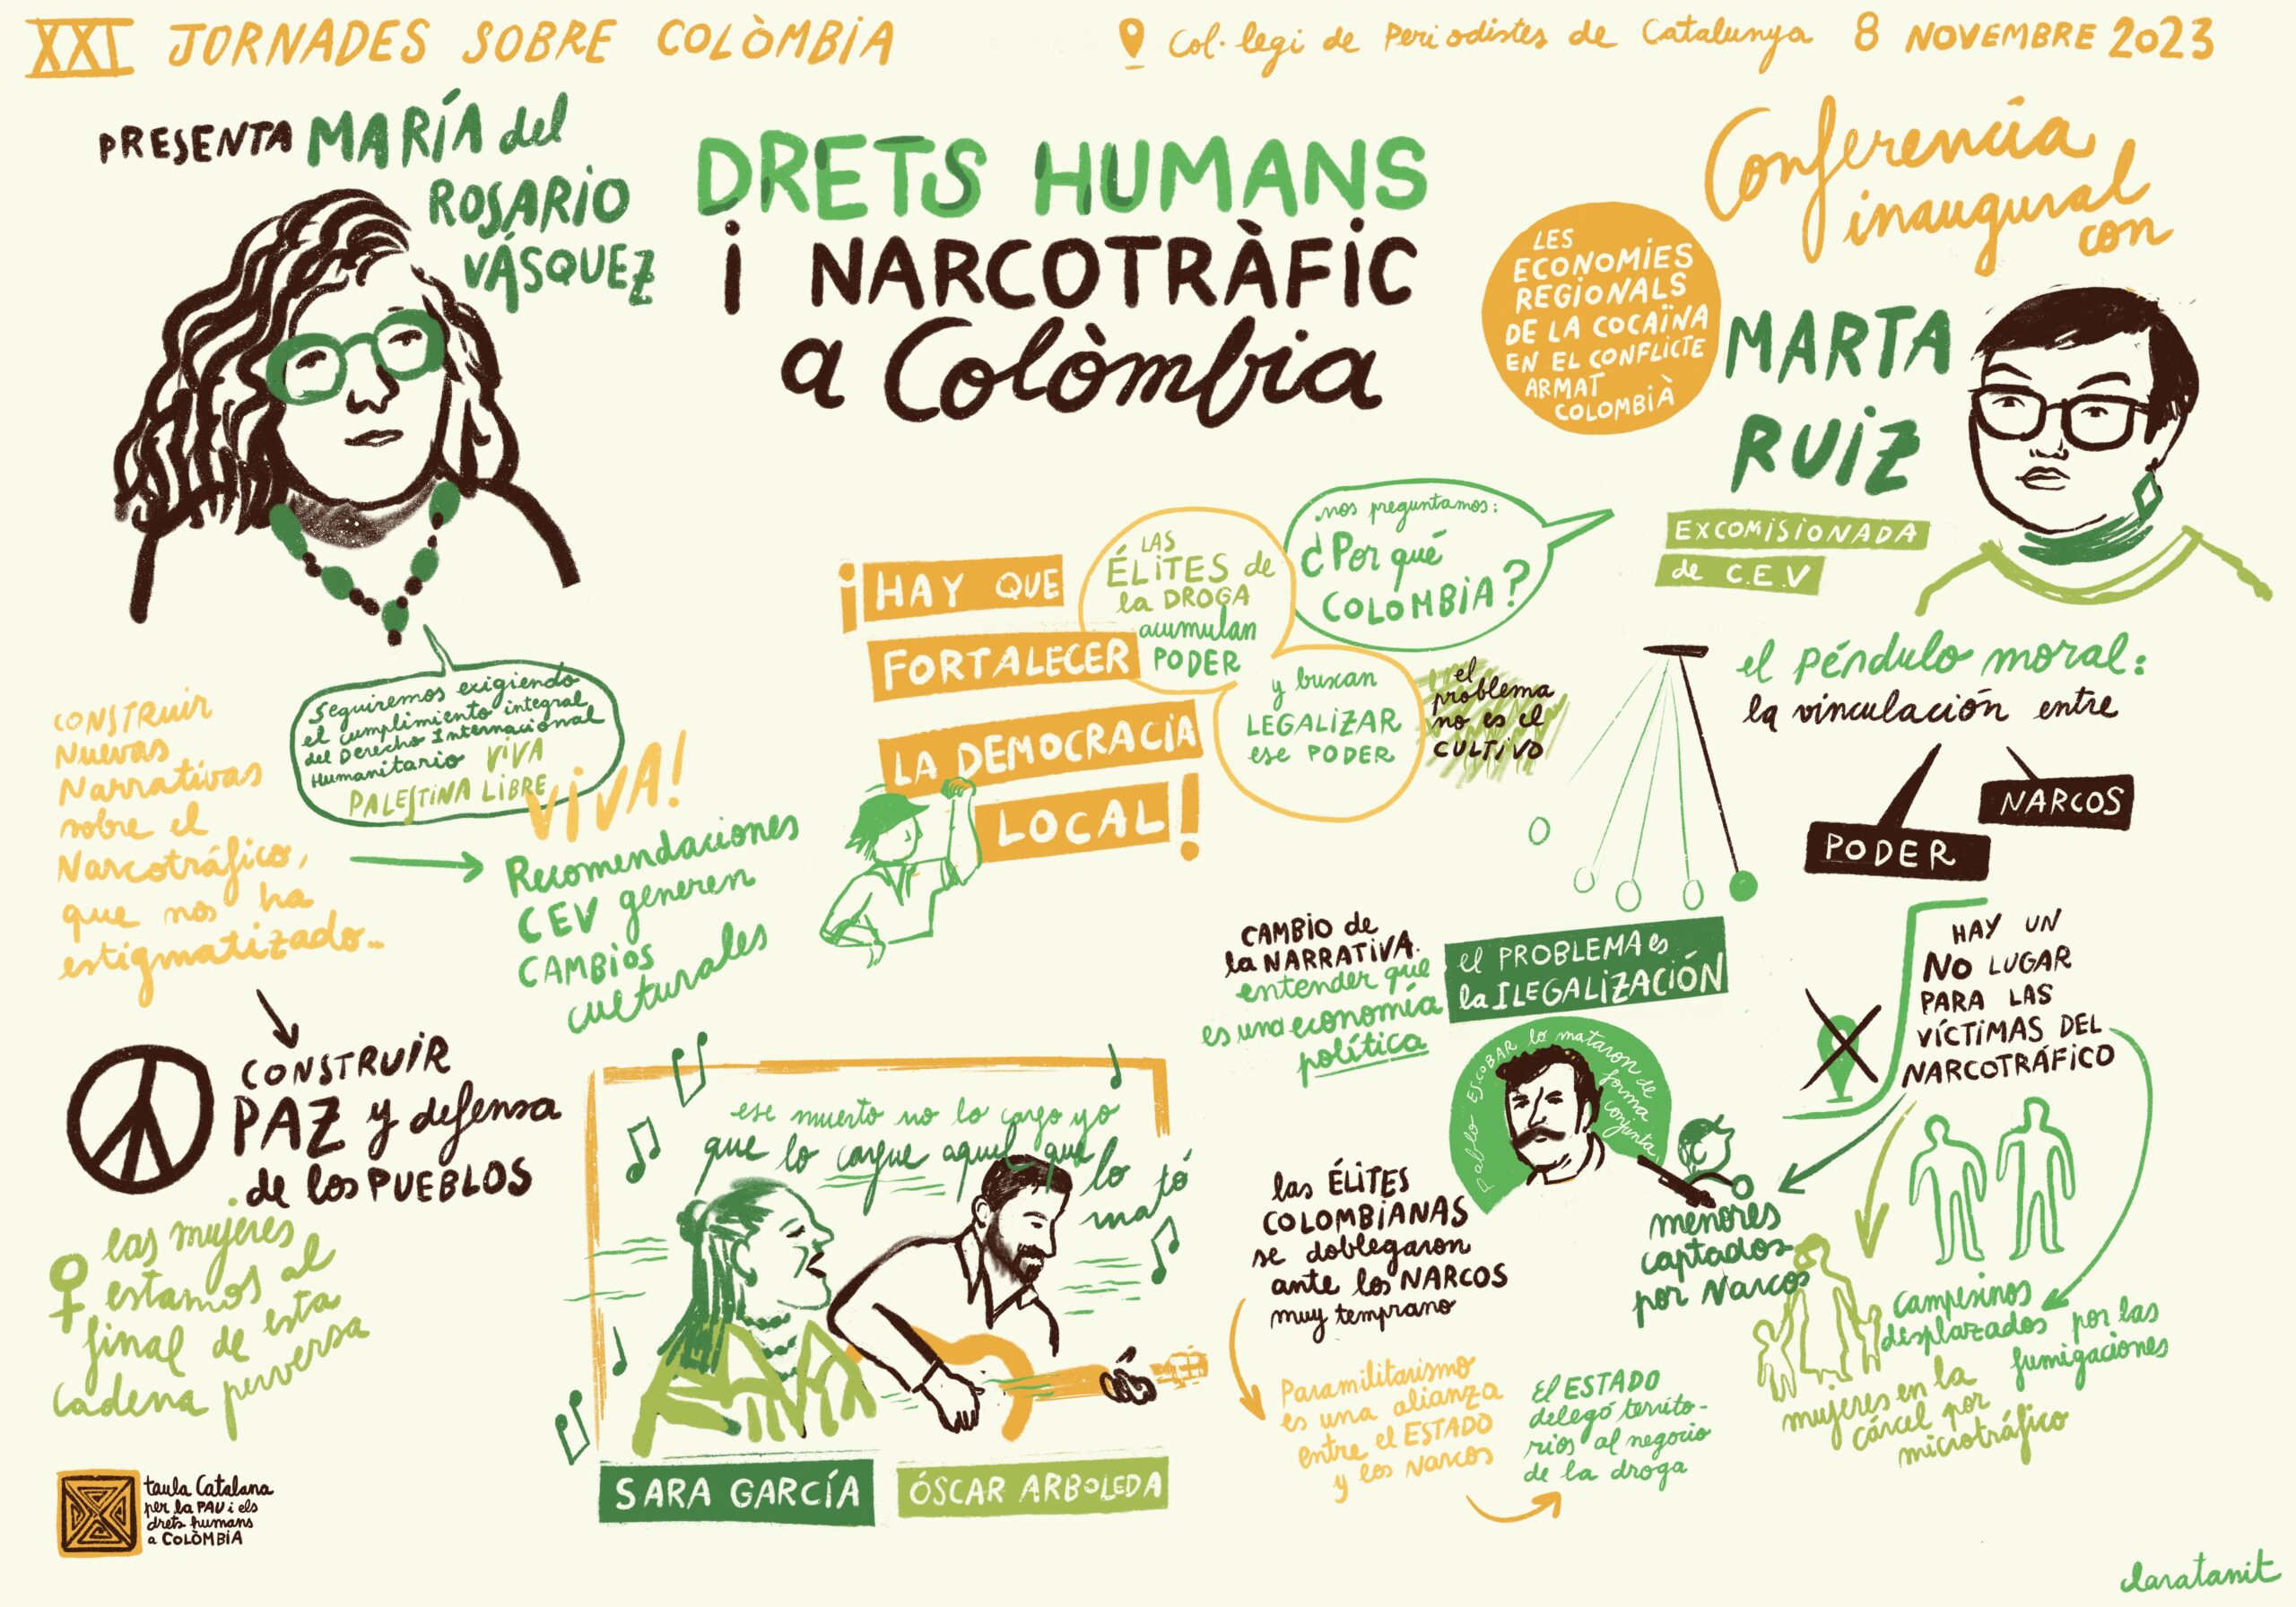 XXI JORNADES SOBRE COLÒMBIA
Col·legi de Periodistes de Catalunya 8 NOVEMBRE 2023
PRESENTA MARÍA del
ROSARIO
VÁSQUEZ
DRETS HUMANS
i NARCOTRÀFIC
a Colòmbia
Conferència
inaugural
con
LES
ECONOMIES
REGIONALS
DE LA COCAÏNA
EN EL CONFLICTE
ARMAT
COLOMBIÀ
MARTA
RUIZ
EXCOMISIONADA
de C.E.V
Seguiremos exigiendo
el cumplimiento integral
del Derecho Internacional
Humanitario VIVA
PALESTINA LIBRE
VIVA!
CONSTRUIR
Nuevas
Narrativas
sobre el
Narcotráfico,
que nos ha
estigmatizado...
Recomendaciones
CEV generen
CAMBIOS
culturales
CONSTRUIR
PAZ y defensa
de los PUEBLOS
las mujeres
estamos al
final de esta
cadena perversa
¡HAY QUE
FORTALECER
LA DEMOCRACIA
LOCAL!
nos preguntamos:
¿Por qué
COLOMBIA?
LAS
ÉLITES de
la DROGA
acumulan
PODER
y buscan
LEGALIZAR
ese PODER
el
problema
no es el
CULTIVO
el péndulo moral:
la vinculación entre
NARCOS
PODER
CAMBIO de
la NARRATIVA.
entender que
es una economía
política
el PROBLEMA es
la ILEGALIZACIÓN
Pablo ESCOBAR lo mataron de forma conjunta
HAY UN
NO LUGAR
PARA LAS
VÍCTIMAS DEL
NARCOTRÁFICO
menores
captados
por Narcos
campesinos
desplazados por las
fumigaciones
mujeres en la
cárcel por
microtráfico
las ÉLITES
COLOMBIANAS
se doblegaron
ante los NARCOS
muy temprano
Paramilitarismo
es una alianza
entre el ESTADO
y los Narcos
El ESTADO
delegó territo-
rios al negocio
de la droga
ese muerto no lo cargo yo
que lo cargue aquel que lo
mató
SARA GARCÍA
ÓSCAR ARBOLEDA
taula Catalana
per la PAU i els
drets humans
a COLÒMBIA
claratanit